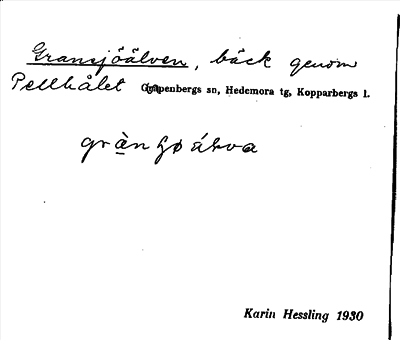 Gransjöälven, bäck genom
Pellhålet Garpenbergs sn, Hedemora tg, Kopparbergs l.
Karin Hessling 1930